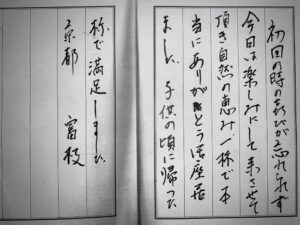 初回の時の喜びが忘れられず
今日は楽しみにして来させて
頂き自然の恵み一杯で本
当にありがとう御座居
ました 子供の頃に帰った
様で満足しました
京都 富枝